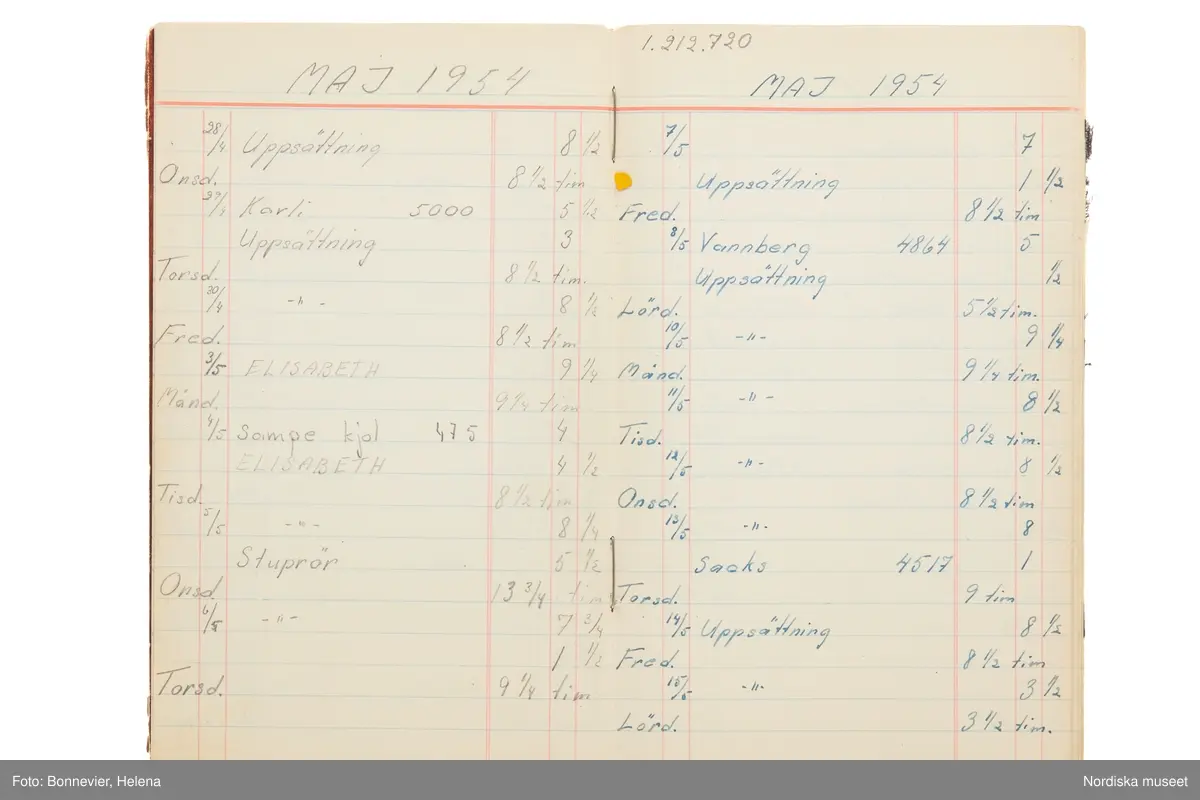 MAJ 1954
28/4 Uppsättning 8 1/2
Onsd. 8 1/2 tim
29/4 Karli 5000 5 1/2
Uppsättning 3
Torsd. 8 1/2 tim.
30/4 -"- 8 1/2
Fred. 8 1/2 tim
3/5 ELISABETH 9 1/4
Månd. 9 1/4 tim
4/5 Sampe kjol 475 4
ELISABETH 4 1/2
Tisd. 8 1/2 tim
5/5 -"- 8 1/4
Stuprör 5 1/2
Onsd. 13 3/4 tim
6/5 -"- 7 3/4
1 1/2
Torsd. 9 1/4 tim
1.212.720
MAJ 1954
7/5 7
Uppsättning 1 1/2
Fred. 8 1/2 tim
8/5 Vannberg 4864 5
Uppsättning 1/2
Lörd. 5 1/2 tim.
10/5 -"- 9 1/4
Månd. 9 1/4 tim.
11/5 -"- 8 1/2
Tisd. 8 1/2 tim.
12/5 -"- 8 1/2
Onsd. 8 1/2 tim
13/5 -"- 8
Sacks 4517 1
Torsd. 9 tim
14/5 Uppsättning 8 1/2
Fred. 8 1/2 tim
15/5 -"- 3 1/2
Lörd. 3 1/2 tim.
Foto: Bonnevier, Helena
Nordiska museet